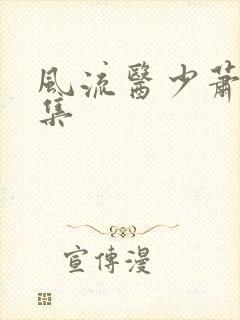 風流醫少蕭
集
宣傳漫